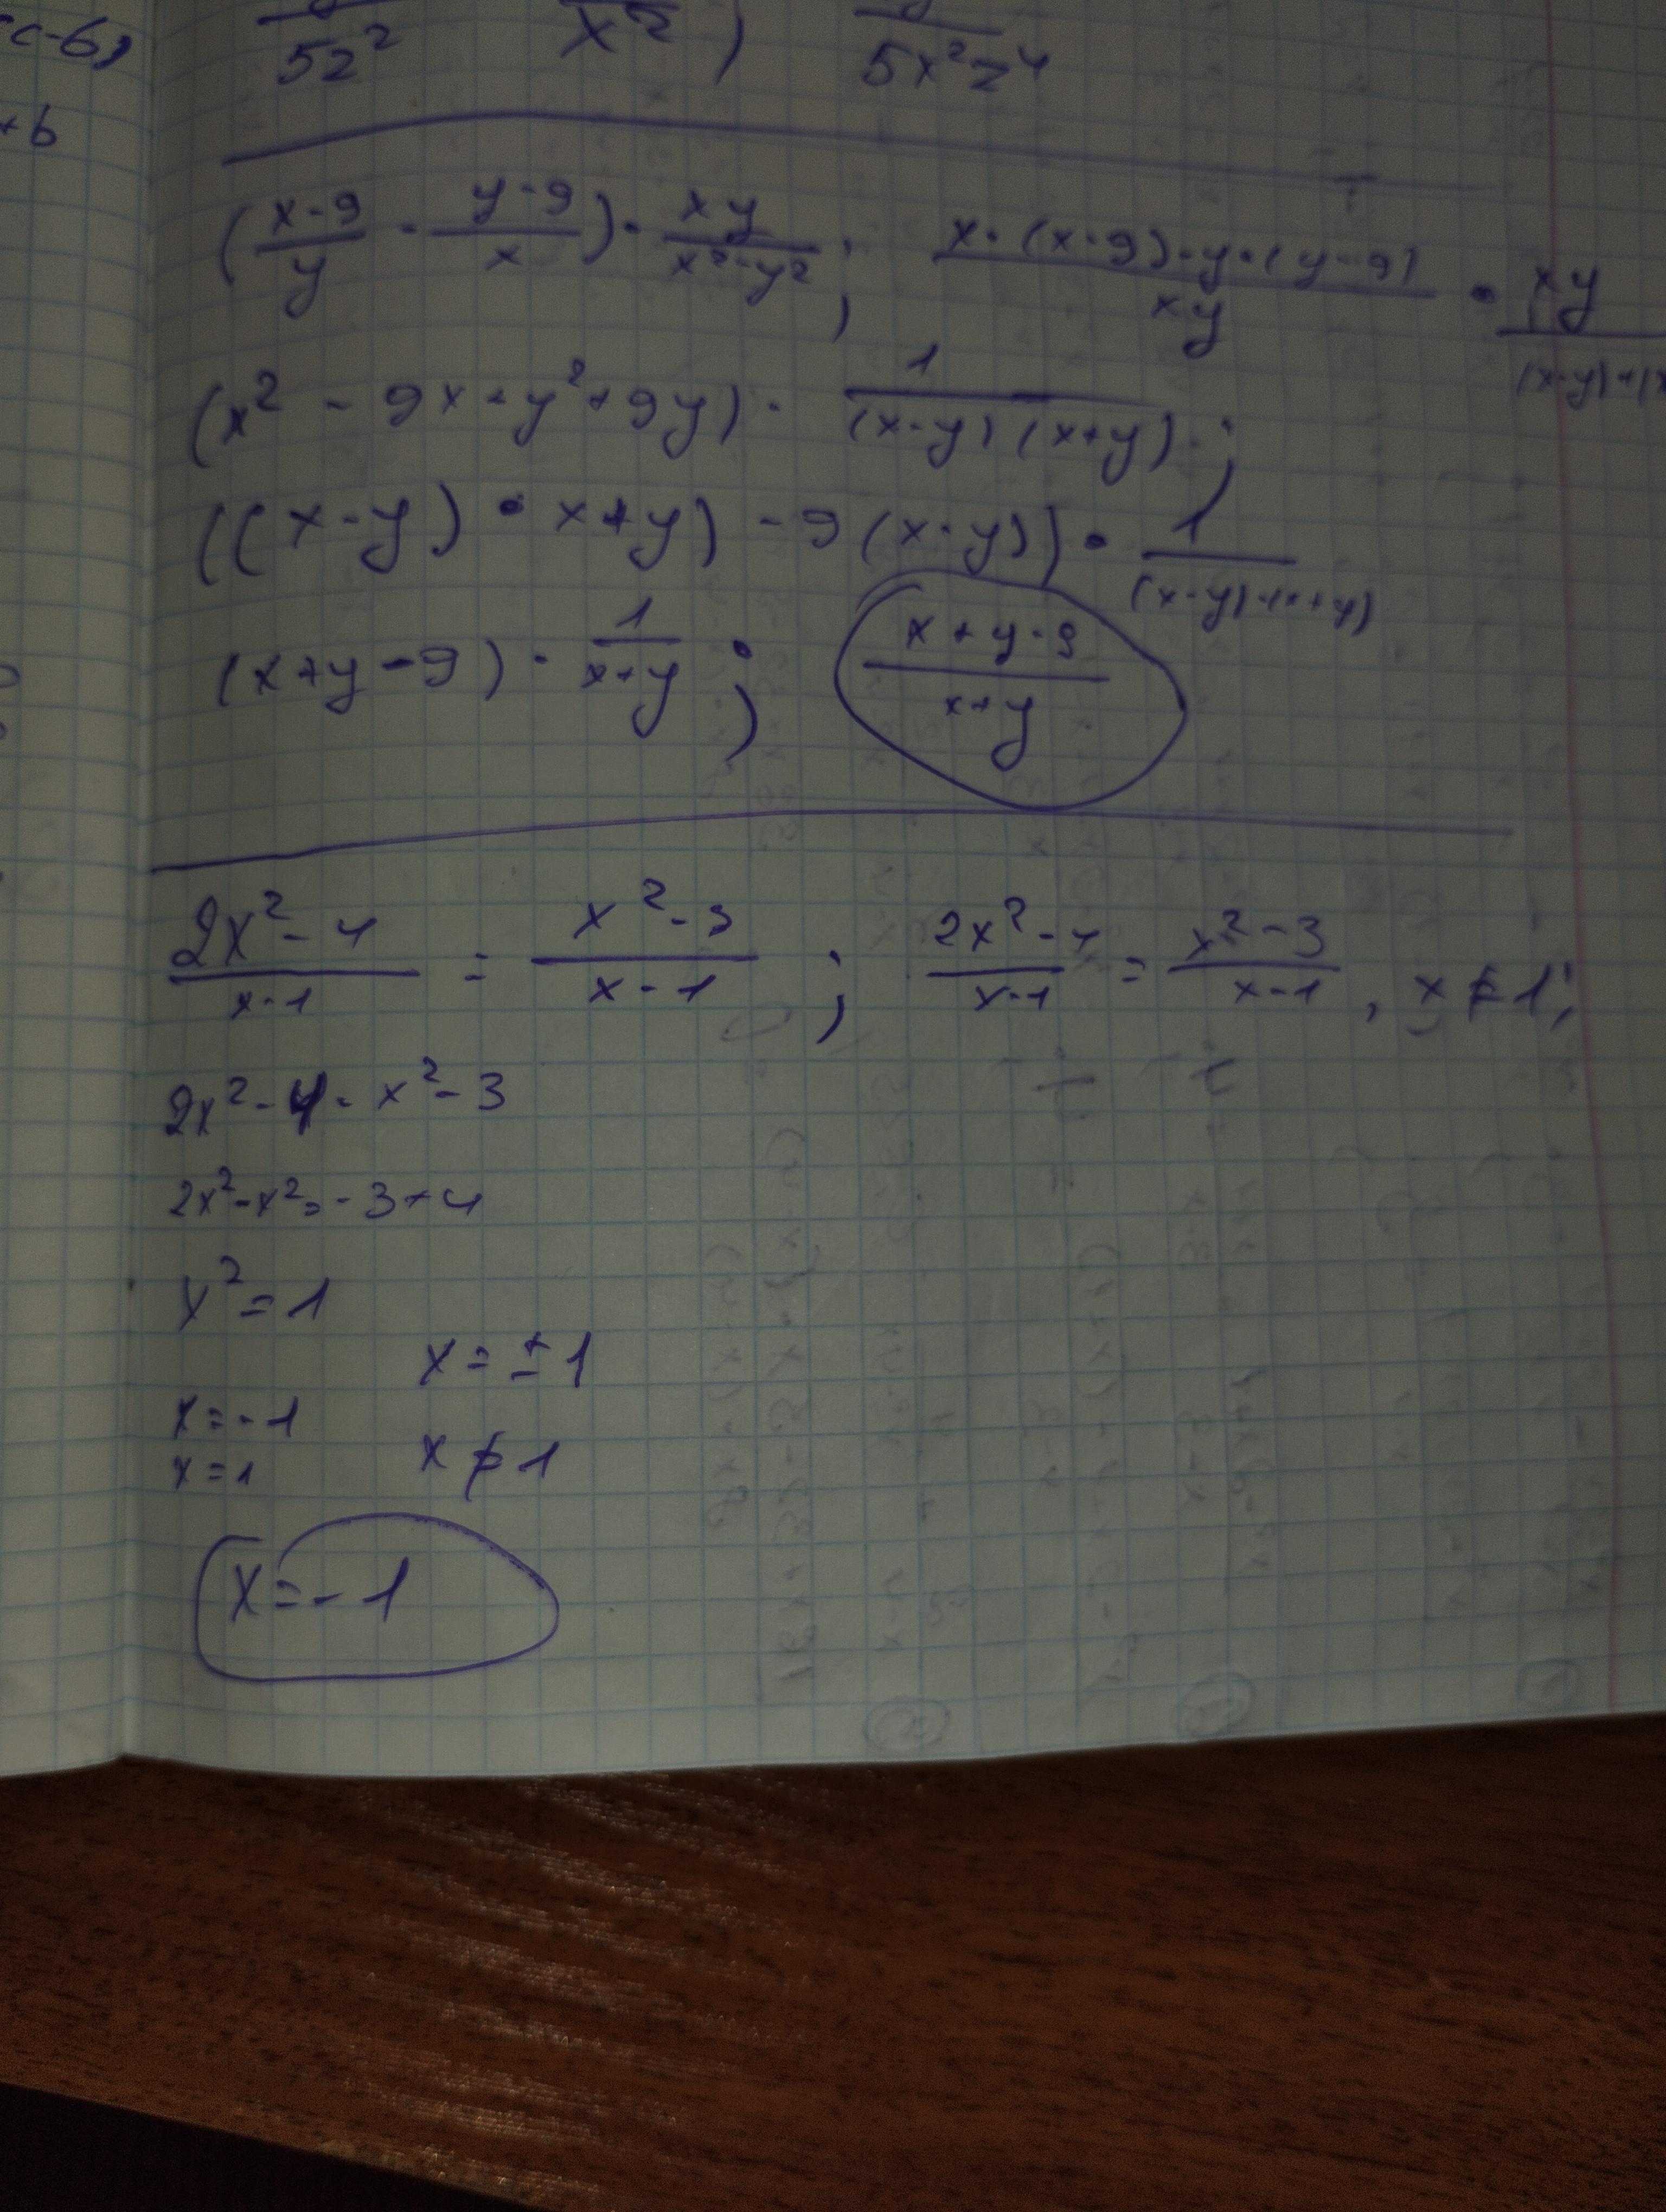 c-6)
+b
5z² x² ) 5x²z⁴
(x-9/y - y-9/x) · xy/x²-y² ; x·(x-9)-y·(y-9)/xy · xy/(x-y)+(x
(x² - 9x - y² + 9y) · 1/(x-y)(x+y) ;
((x-y) · x+y) - 9(x-y)) · 1/(x-y)·(x+y)
(x+y-9) · 1/x+y ; x+y-9/x+y
2x²-4/x-1 = x²-3/x-1 ; 2x²-4/x-1 = x²-3/x-1 , x≠1;
2x²-4= x²-3
2x²-x²=-3+4
x²=1
x=±1
x=-1
x≠1
x=1
x=-1